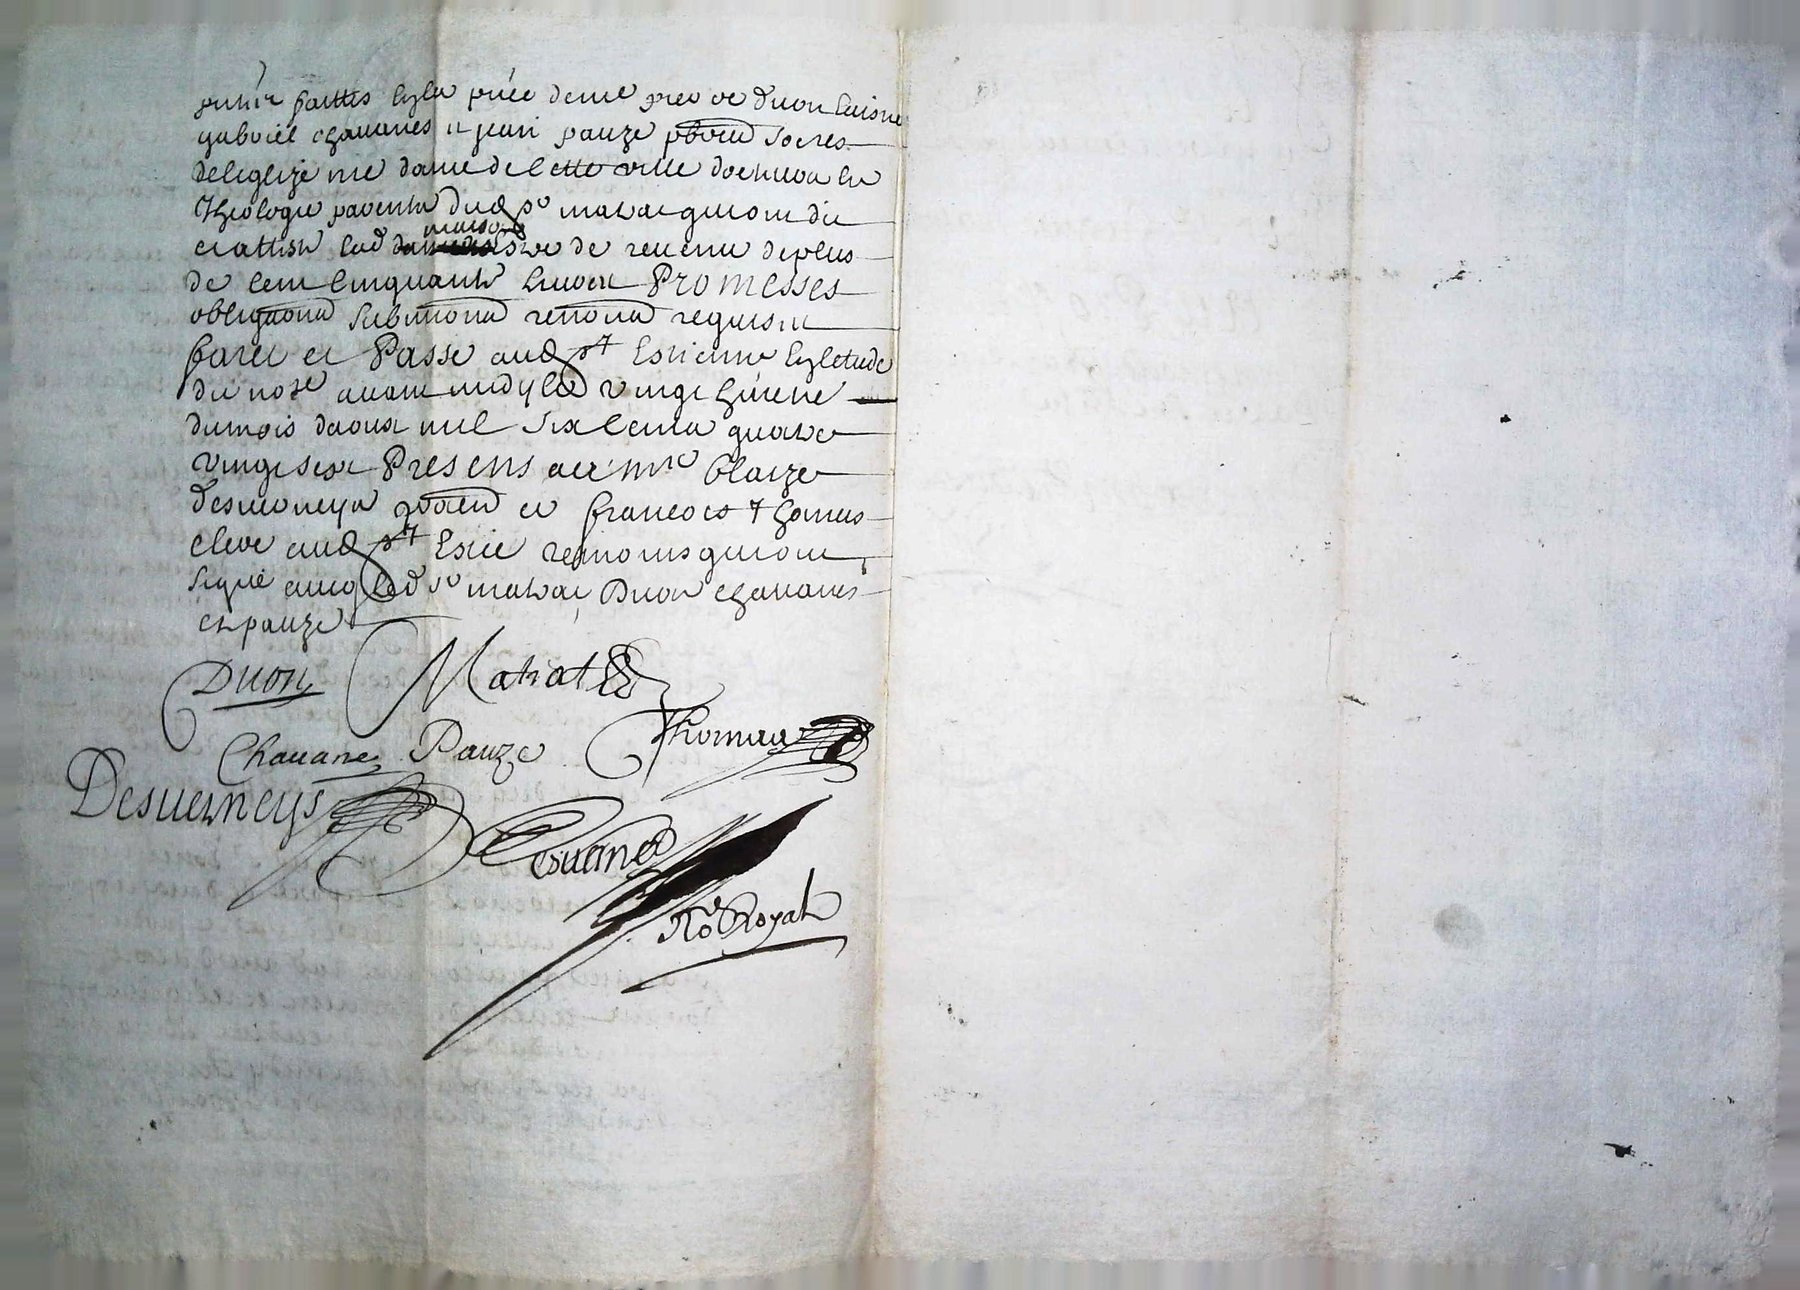 faittes en la pnce de me pierre Duon laisne
gabriel chauanes et jean pauze pbres socres
de leglize nre dame de cette ville docteur en
Theologie parents dud sr matrat qui ont dit
et attesté lad maison estre de reuenu de plus
de cent cinquante liures Promesses
obligaons submions renons requises
faict et Passé aud st Estienne en letude
du nore auant midy le vingt
du mois daoust mil six cents quatre
vingt sept Presens a ce mre blaize
desuerneys praticien et francois Thomas
clerc aud st Este temoins qui ont
signé auec led sr matrat Duon chauanes
et pauze
Duon Matrat
Chauanes Pauze Thomas
Desuerneys
Desuerneys
No Royal